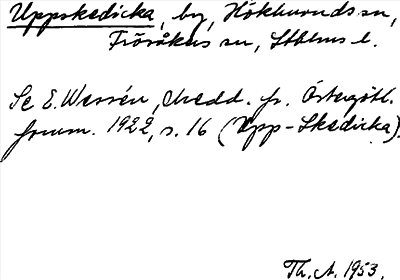 Uppskedicka, by, Hökhuvuds sn,
Frösåkers hd, Sthlms l.
Se E. Wessén, Medd. fr. Östergötl.
fornm. 1922, s. 16 (Upp-Skedicka).
Th. A. 1953.